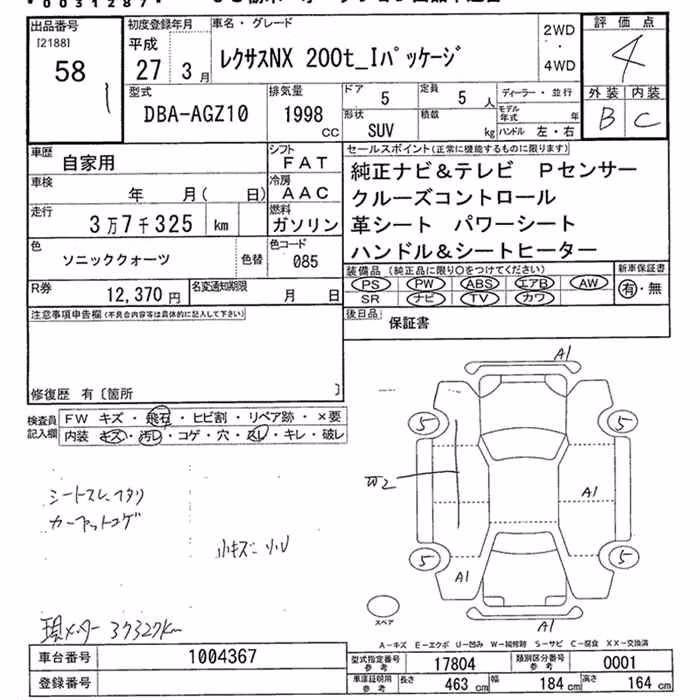 *0031287*
出品番号
[2188]
58
1
初度登録年月
平成
27年 3月
車名・グレード
レクサスNX 200t_Iパッケージ
2WD
・
4WD
評価点
4
外装 内装
B C
型式
DBA-AGZ10
排気量
1998
CC
ドア
5
定員
5 人
ディーラー・並行
形状
SUV
積載
kg
モデル年式
年
ハンドル 左・右
車歴
自家用
シフト
FAT
車検
年 月( 日)
冷房
AAC
走行
3万7千325 km
燃料
ガソリン
色
ソニッククォーツ
色替
色コード
085
R券
12,370円
名変通知期限
月 日
セールスポイント(正常に機能するものに限ります)
純正ナビ&テレビ Pセンサー
クルーズコントロール
革シート パワーシート
ハンドル&シートヒーター
装備品(純正品に限り○をつけてください)
PS PW ABS エアB AW
SR ナビ TV カワ
新車保証書
有・無
後日品
保証書
注意事項申告欄(不具合内容等は具体的に記入して下さい)
修復歴 有〔箇所 〕
検査員記入欄
FW キズ・飛石・ヒビ割・リペア跡・×要
内装 キズ・汚レ・コゲ・穴・スレ・キレ・破レ
シートスレ・ヘタリ
カーペットコゲ
小キズ 小U
現メーター 37327km
A1
5 5
W2
A1
5 5
A1
スペア
A1
A-キズ E-エクボ U-凹み W-補修跡 S-サビ C-腐食 XX-交換済
車台番号
1004367
登録番号
型式指定番号
参考
17804
類別区分番号
参考
0001
車庫証明用
参考
長さ 463 cm 幅 184 cm 高さ 164 cm